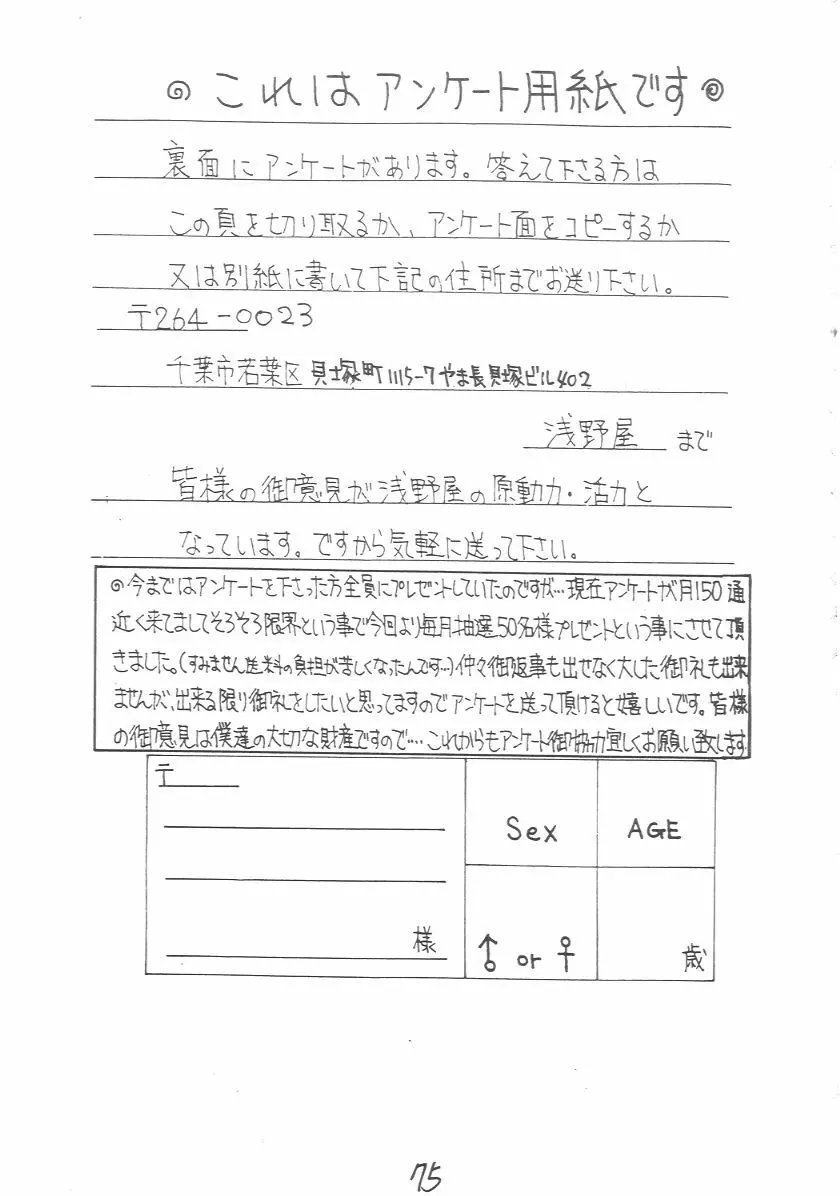 ◎これはアンケート用紙です◎
裏面にアンケートがあります。答えて下さる方は
この頁を切り取るか、アンケート面をコピーするか
又は別紙に書いて下記の住所までお送り下さい。
〒264-0023
千葉市若葉区貝塚町1115-7やま長貝塚ビル402
浅野屋 まで
皆様の御意見が浅野屋の原動力・活力と
なっています。ですから気軽に送って下さい。
◎今まではアンケートを下さった方全員にプレゼントしていたのですが…現在アンケートが月150通
近く来てましてそろそろ限界という事で今回より毎月抽選50名様プレゼントという事にさせて頂
きました。(すみません送料の負担が苦しくなったんです…)仲々御返事も出せなく大した御礼も出来
ませんが、出来る限り御礼をしたいと思ってますのでアンケートを送って頂けると嬉しいです。皆様
の御意見は僕達の大切な財産ですので…これからもアンケート御協力宜しくお願い致します
〒
Sex
AGE
様
♂ or ♀
歳
75